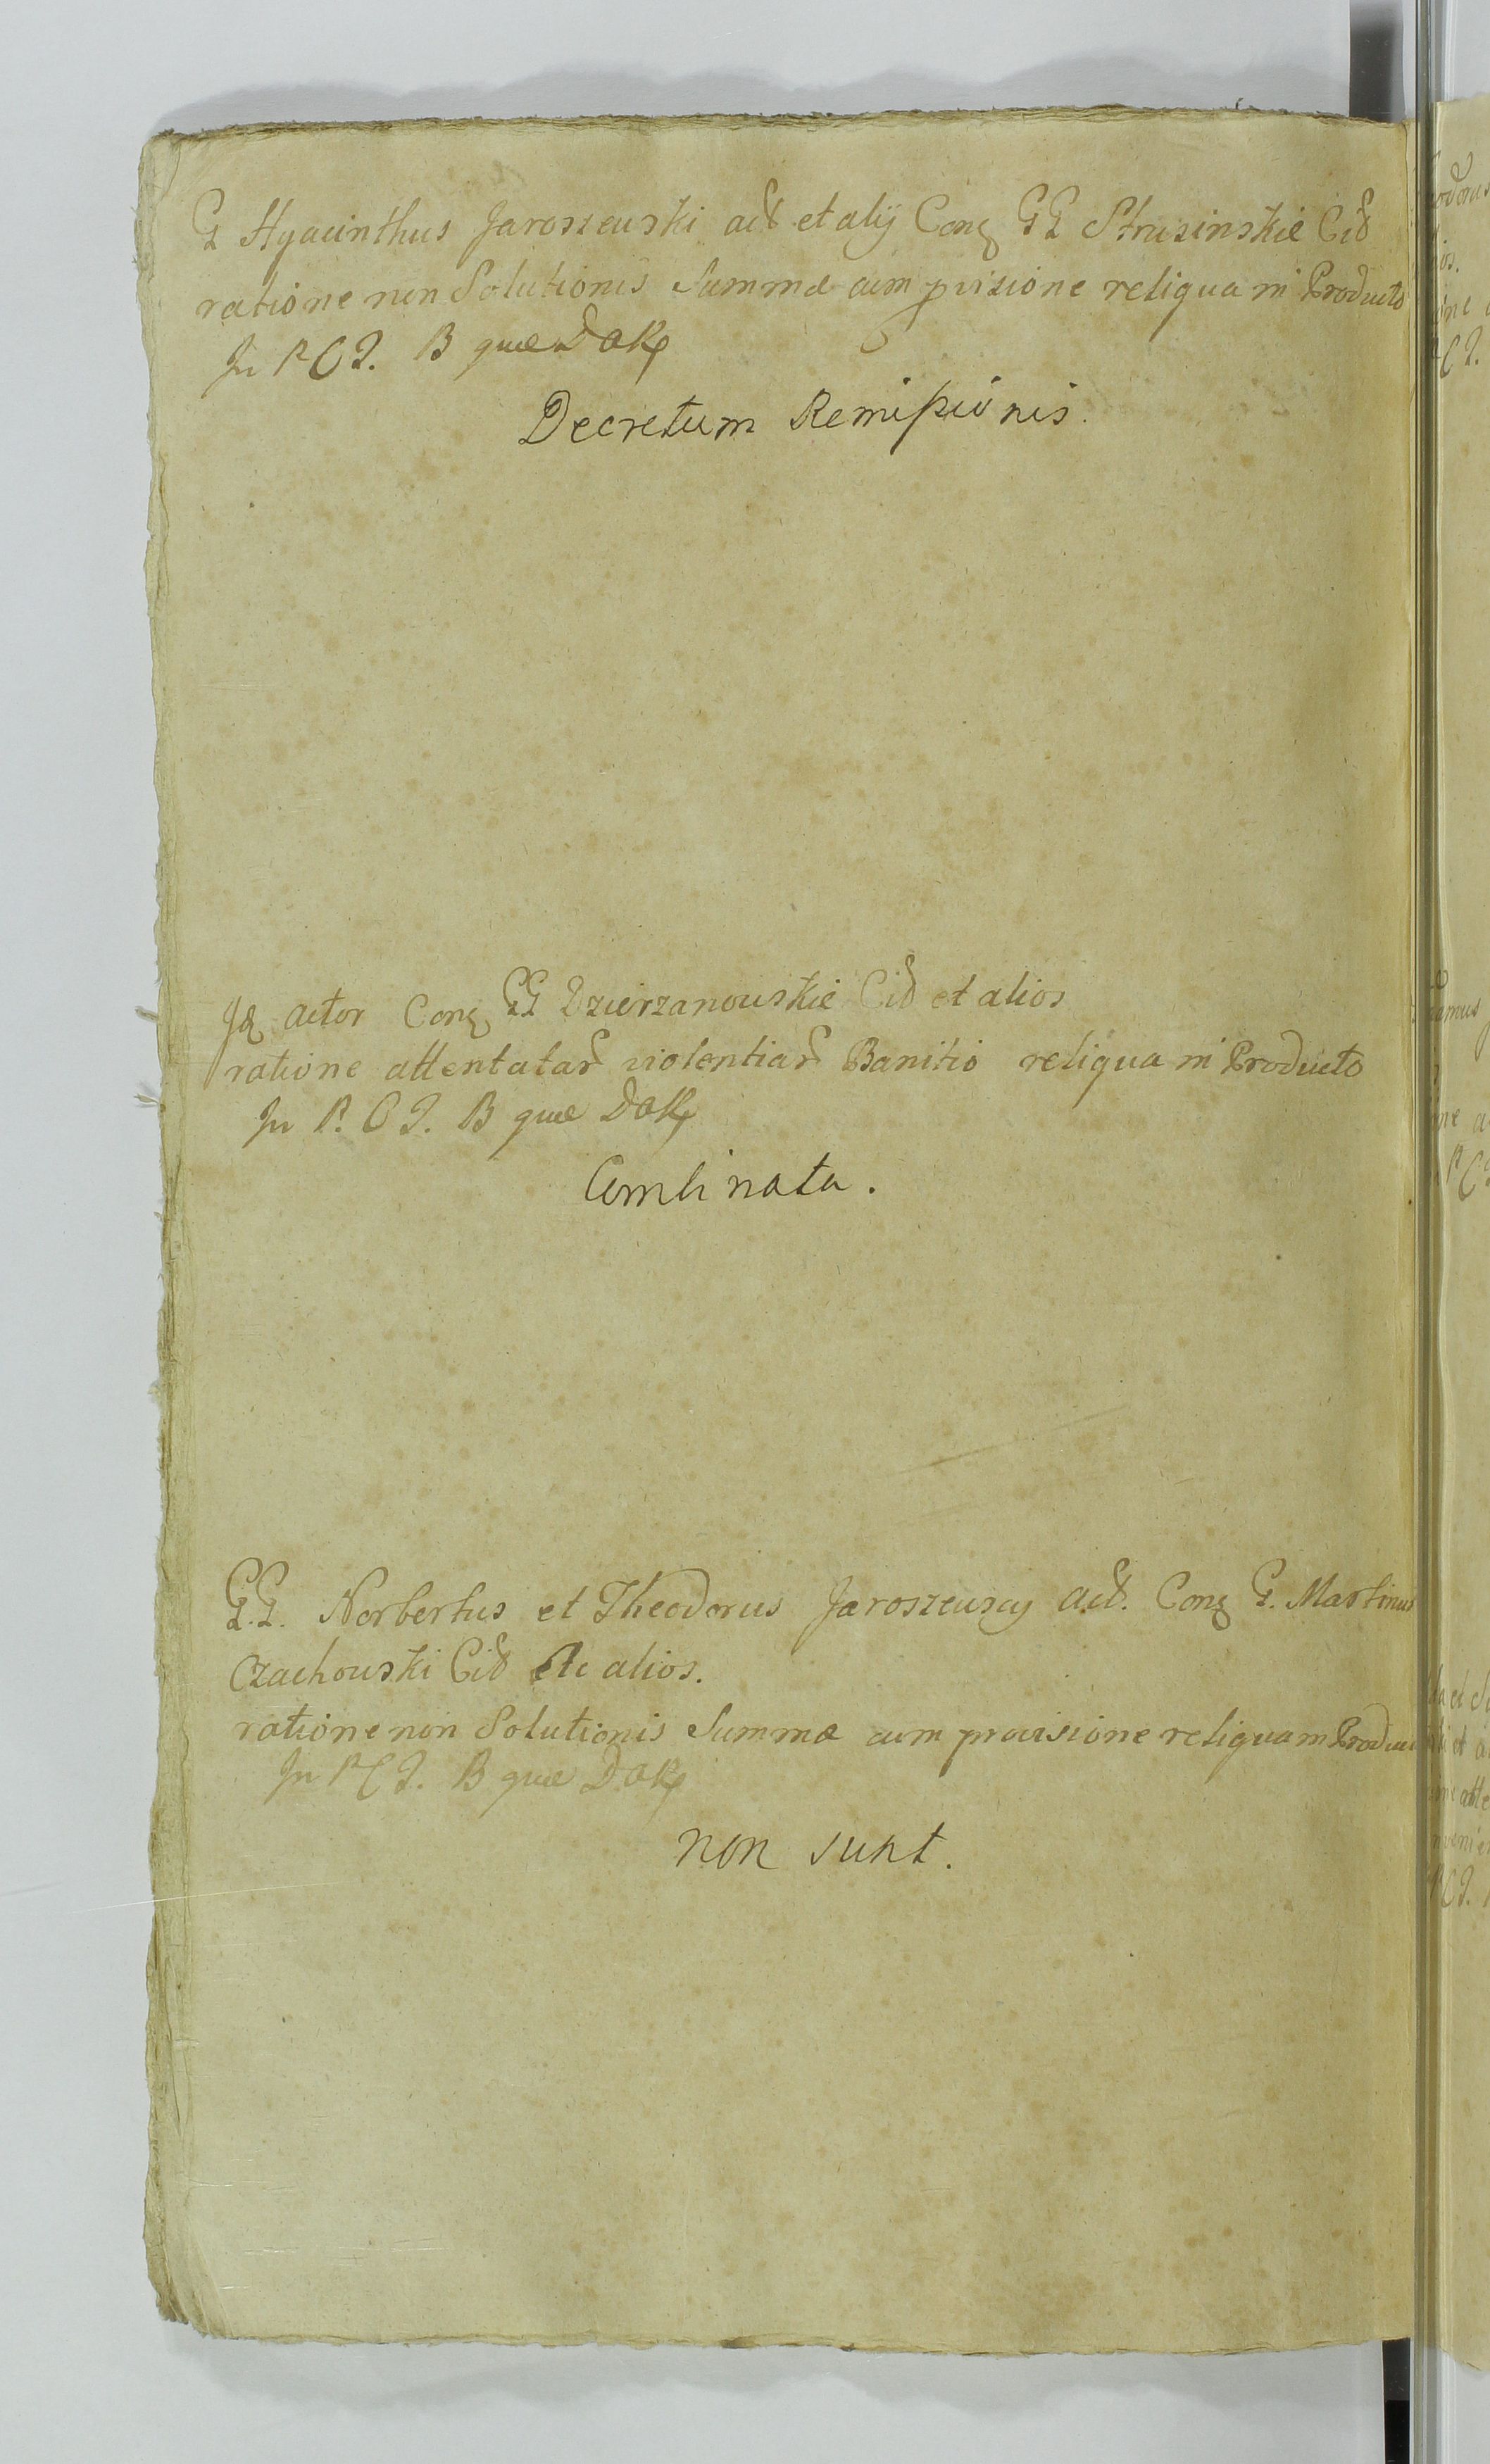 G Hyacinthus Jaroszewski act et alij Conq GG Strusinskie Cit
ratione non Solutionis Summæ cum pvisione reliqua in Producto
In P C J. B quæ D
Decretum Remissionis.
Id actor Conq GG Dzierzanowskie Cit et alios
ratione attentatar violentiar Banitio reliqua in Producto
In P. C J. B quæ D
Combinata.
G.G. Norbertus et Theodorus Jaroszewscy act. Conq G. Martinus
Czachowski Cit alios.
ratione non Solutionis Summæ cum provisione reliqua in Produc
In P C J. B quæ D
non sunt.